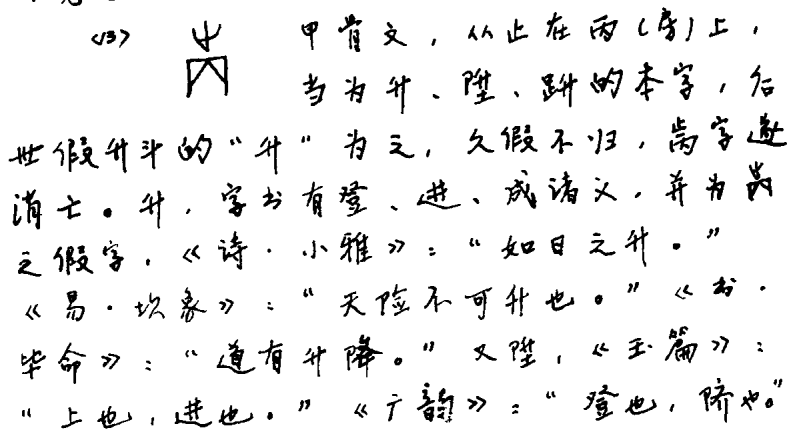 <13> 甲骨文，从止在丙（房）上，
当为升、陞、跰的本字，后
世假升斗的“升”为之，久假不归，字遂
消亡。升，字书有登、进、成诸义，并为
之假字，《诗·小雅》：“如日之升。”
《易·坎象》：“天险不可升也。”《书·
毕命》：“道有升降。”又陞，《玉篇》：
“上也，进也。”《广韵》：“登也，隮也。”